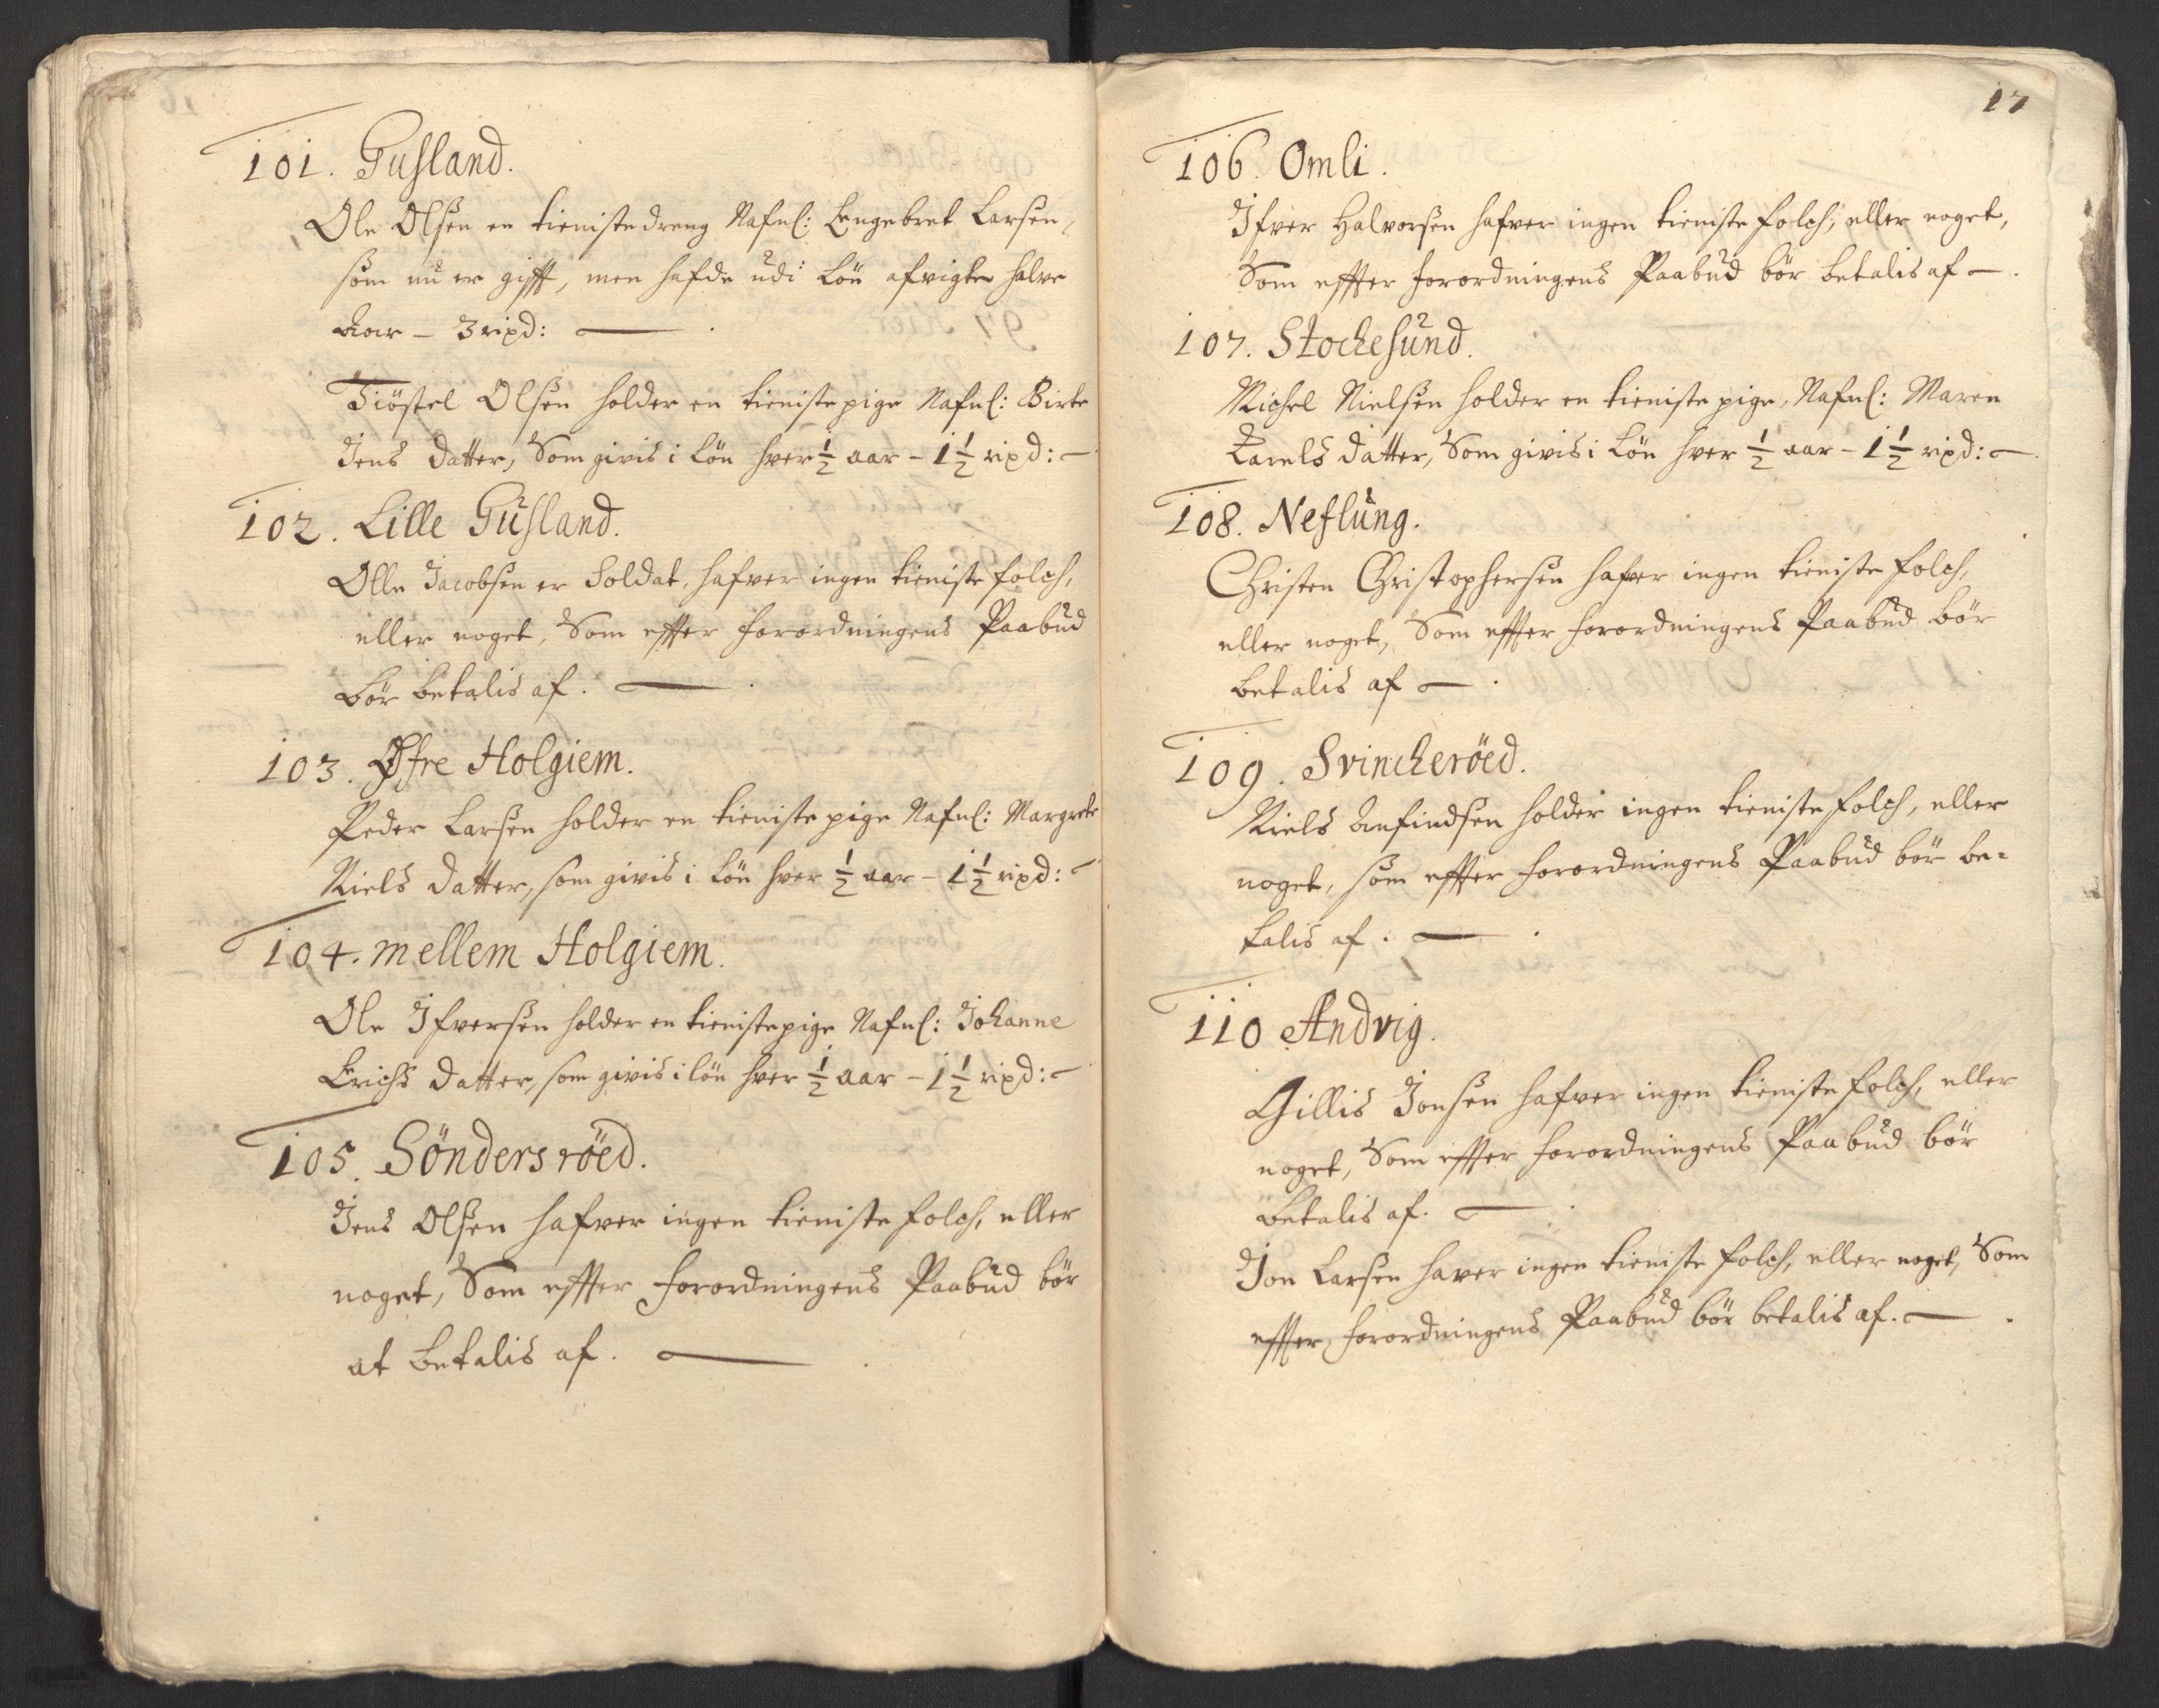 101. Gusland.
Ole Olsen en tieniste dreng Nafnl: Engebret Larsen,
som nu er gifft, men hafde udi løn afvigte halve
Aar – 3 rixd: —
Tiöstel Olsen holder en tieniste pige Nafnl: Birte
Jens datter, Som givis i Løn hver ½ aar – 1½ rixd: –
102. Lille Gusland.
Olle Jacobsen er Soldat, hafver ingen tieniste folch,
eller noget, Som effter forordningens Paabud
bör betalis af. —
103. Øfre Holgiem.
Peder Larsen holder en tieniste pige Nafnl: Margrete
Niels datter, som givis i Løn hver ½ aar – 1½ rixd: –
104. mellem Holgiem.
Ole Ifversen holder en tieniste pige Nafnl: Johanne
Erichs datter, som givis i løn hver ½ aar – 1½ rixd: –
105. Söndersröed.
Jens Olsen hafver ingen tieniste folch, eller
noget, Som effter forordningens Paabud bör
at betalis af. —
17
106. Omli.
Ifver Halvorsen hafver ingen tieniste folch, eller noget,
Som effter forordningens Paabud bör betalis af –.
107. Stochesund.
Michel Nielsen holder en tieniste pige, Nafnl: Maren
datter, Som givis i Løn hver ½ aar – 1½ rixd: –.
108. Neflung.
Christen Christophersen hafver ingen tieniste folch,
eller noget, Som effter forordningens Paabud bör
betalis af –.
109. Svincheröed.
Niels Anfindsen holder ingen tieniste folch, eller
noget, som effter forordningens Paabud bör be-
talis af. —.
110 Andvig.
Gillis Jonsen hafver ingen tieniste folch, eller
noget, Som effter forordningens Paabud bör
betalis af. —.
Jon Larsen haver ingen tieniste folch, eller noget, Som
effter forordningens Paabud bör betalis af. —.